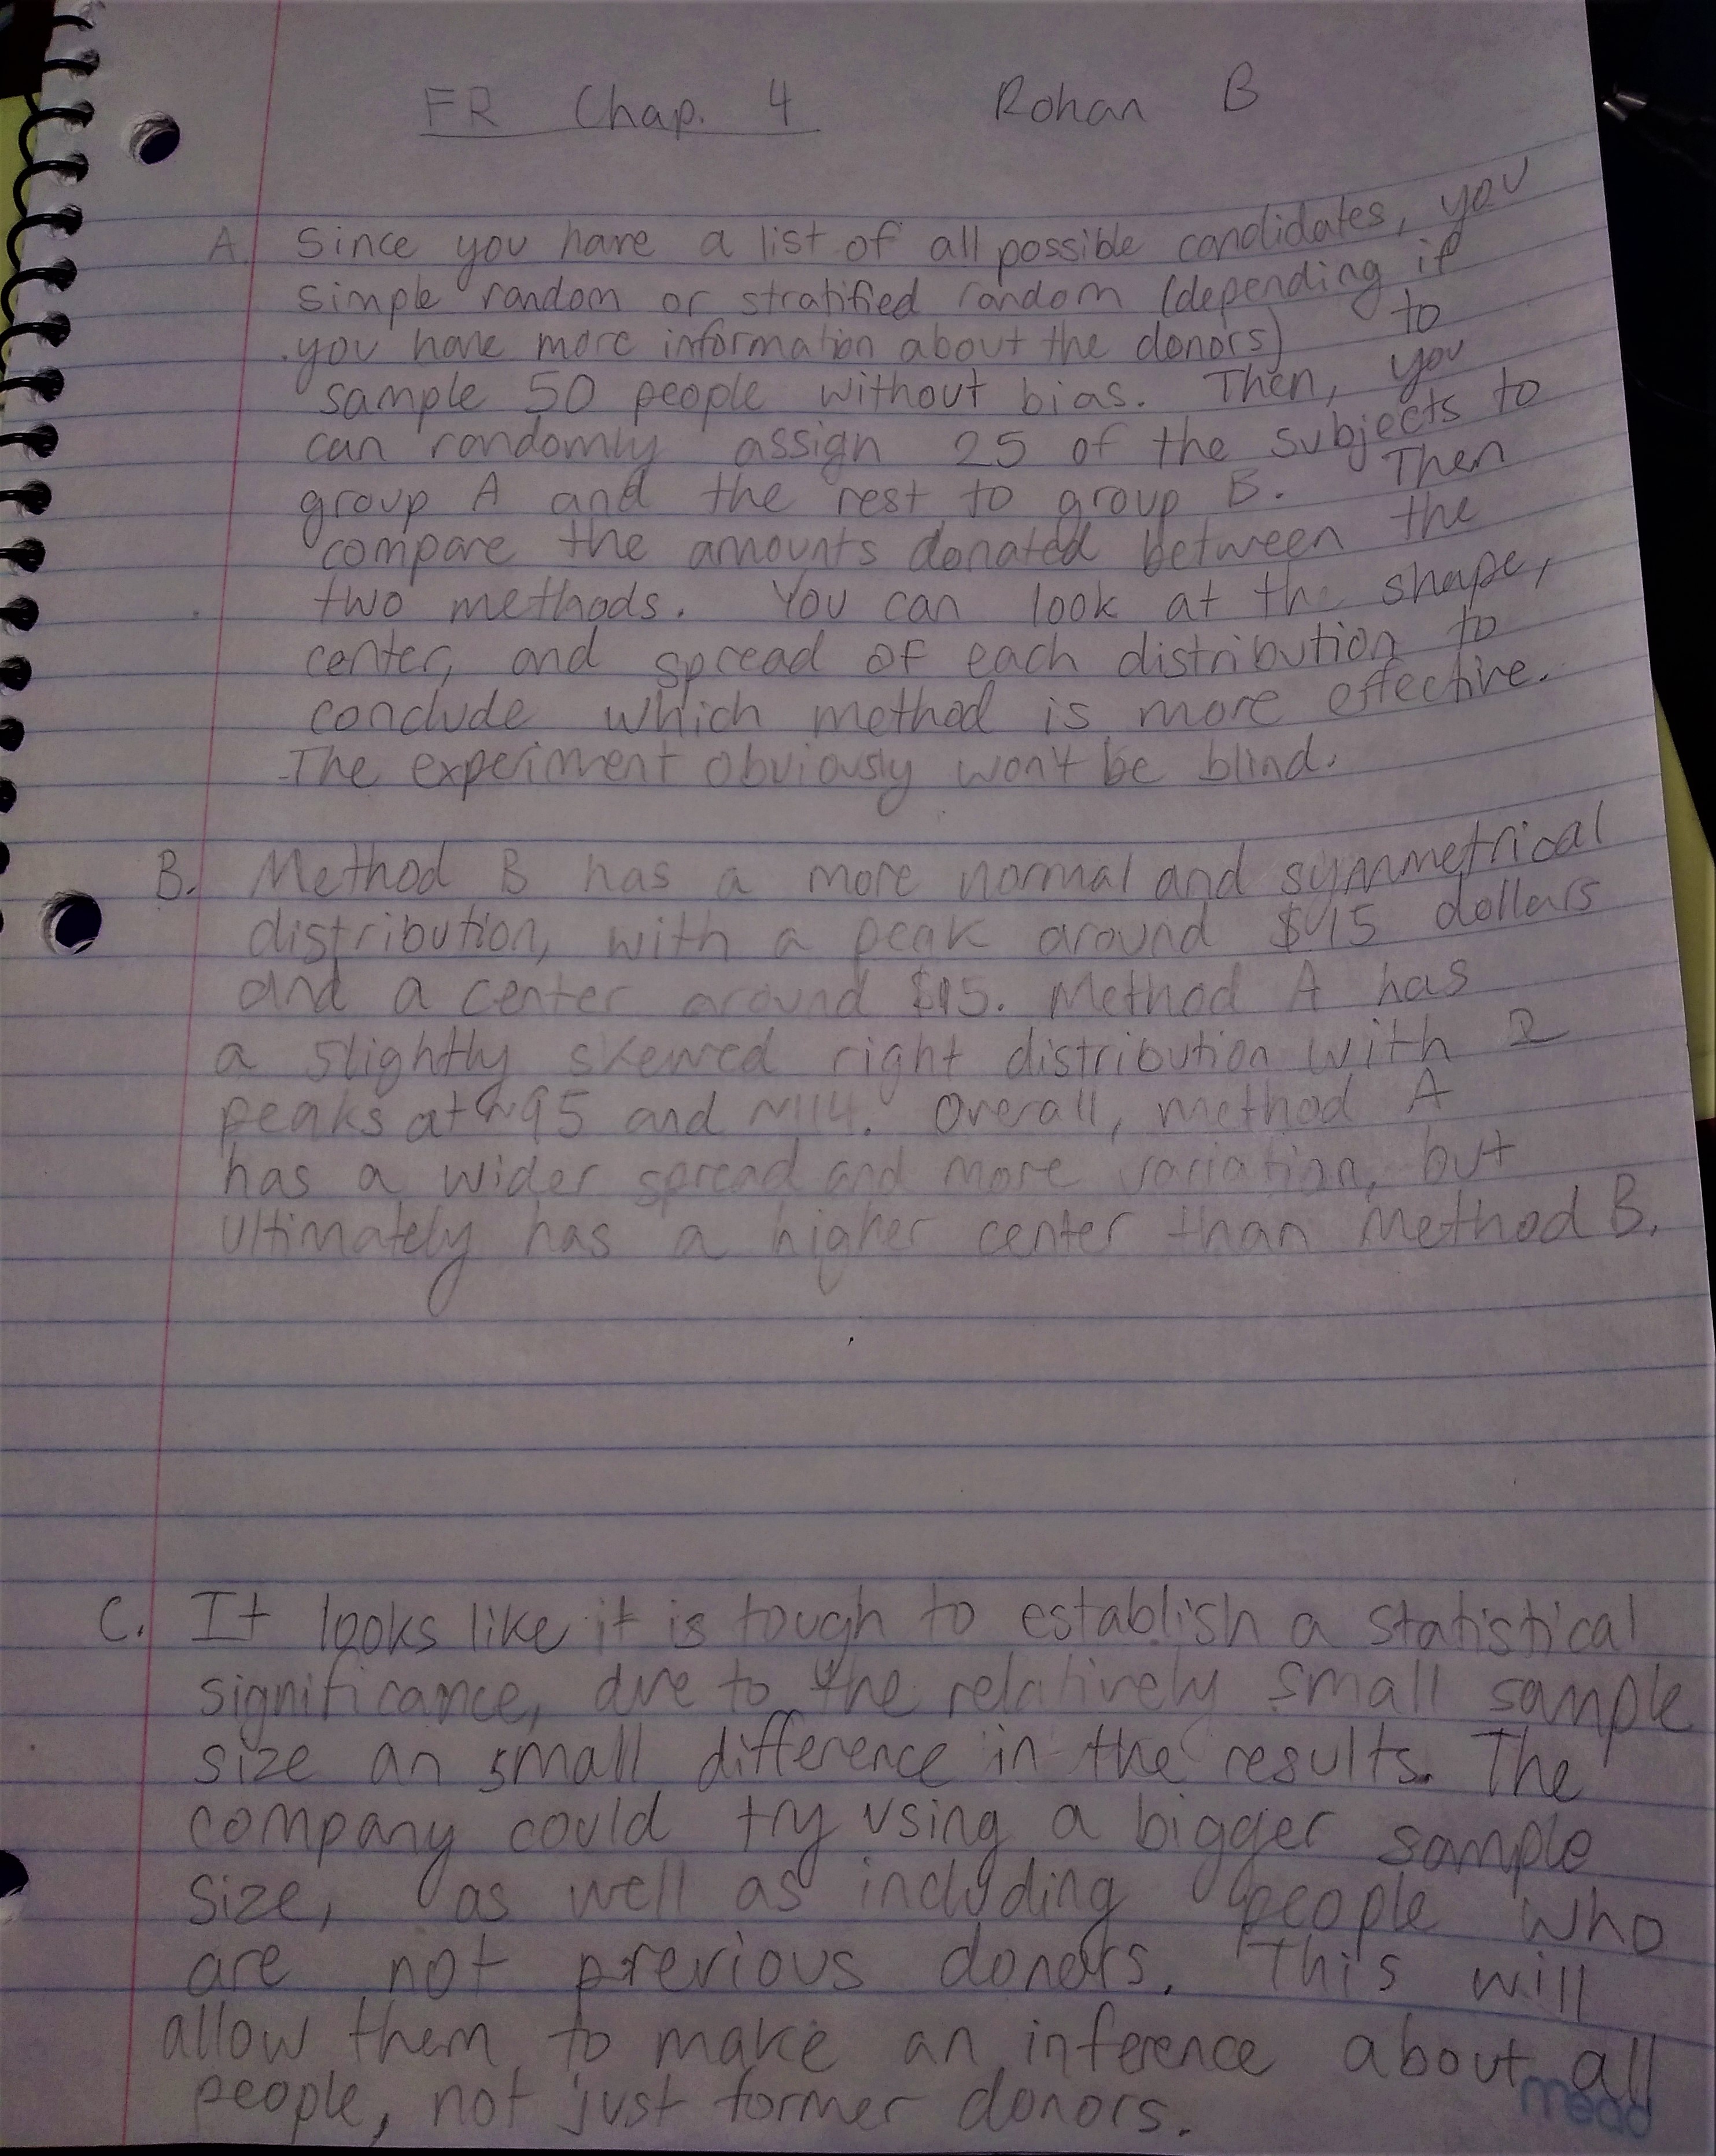 FR Chap. 4 Rohan B
A. Since you have a list of all possible candidates, you
simple random or stratified random (depending if
you have more information about the donors) to
sample 50 people without bias. Then, you
can randomly assign 25 of the subjects to
group A and the rest to group B. Then
compare the amounts donated between the
two methods. You can look at the shape,
center, and spread of each distribution to
conclude which method is more effective.
The experiment obviously won't be blind.
B. Method B has a more normal and symmetrical
distribution, with a peak around dollars
and a center around Method A has
a slightly skewed right distribution with 2
peaks at ~95 and ~114. Overall, method A
has a wider spread and more variation, but
ultimately has a higher center than Method B.
C. It looks like it is tough to establish a statistical
significance, due to the relatively small sample
size an small difference in the results. The
company could try using a bigger sample
size, as well as including people who
are not previous donors. This will
allow them to make an inference about all
people, not just former donors.
mead